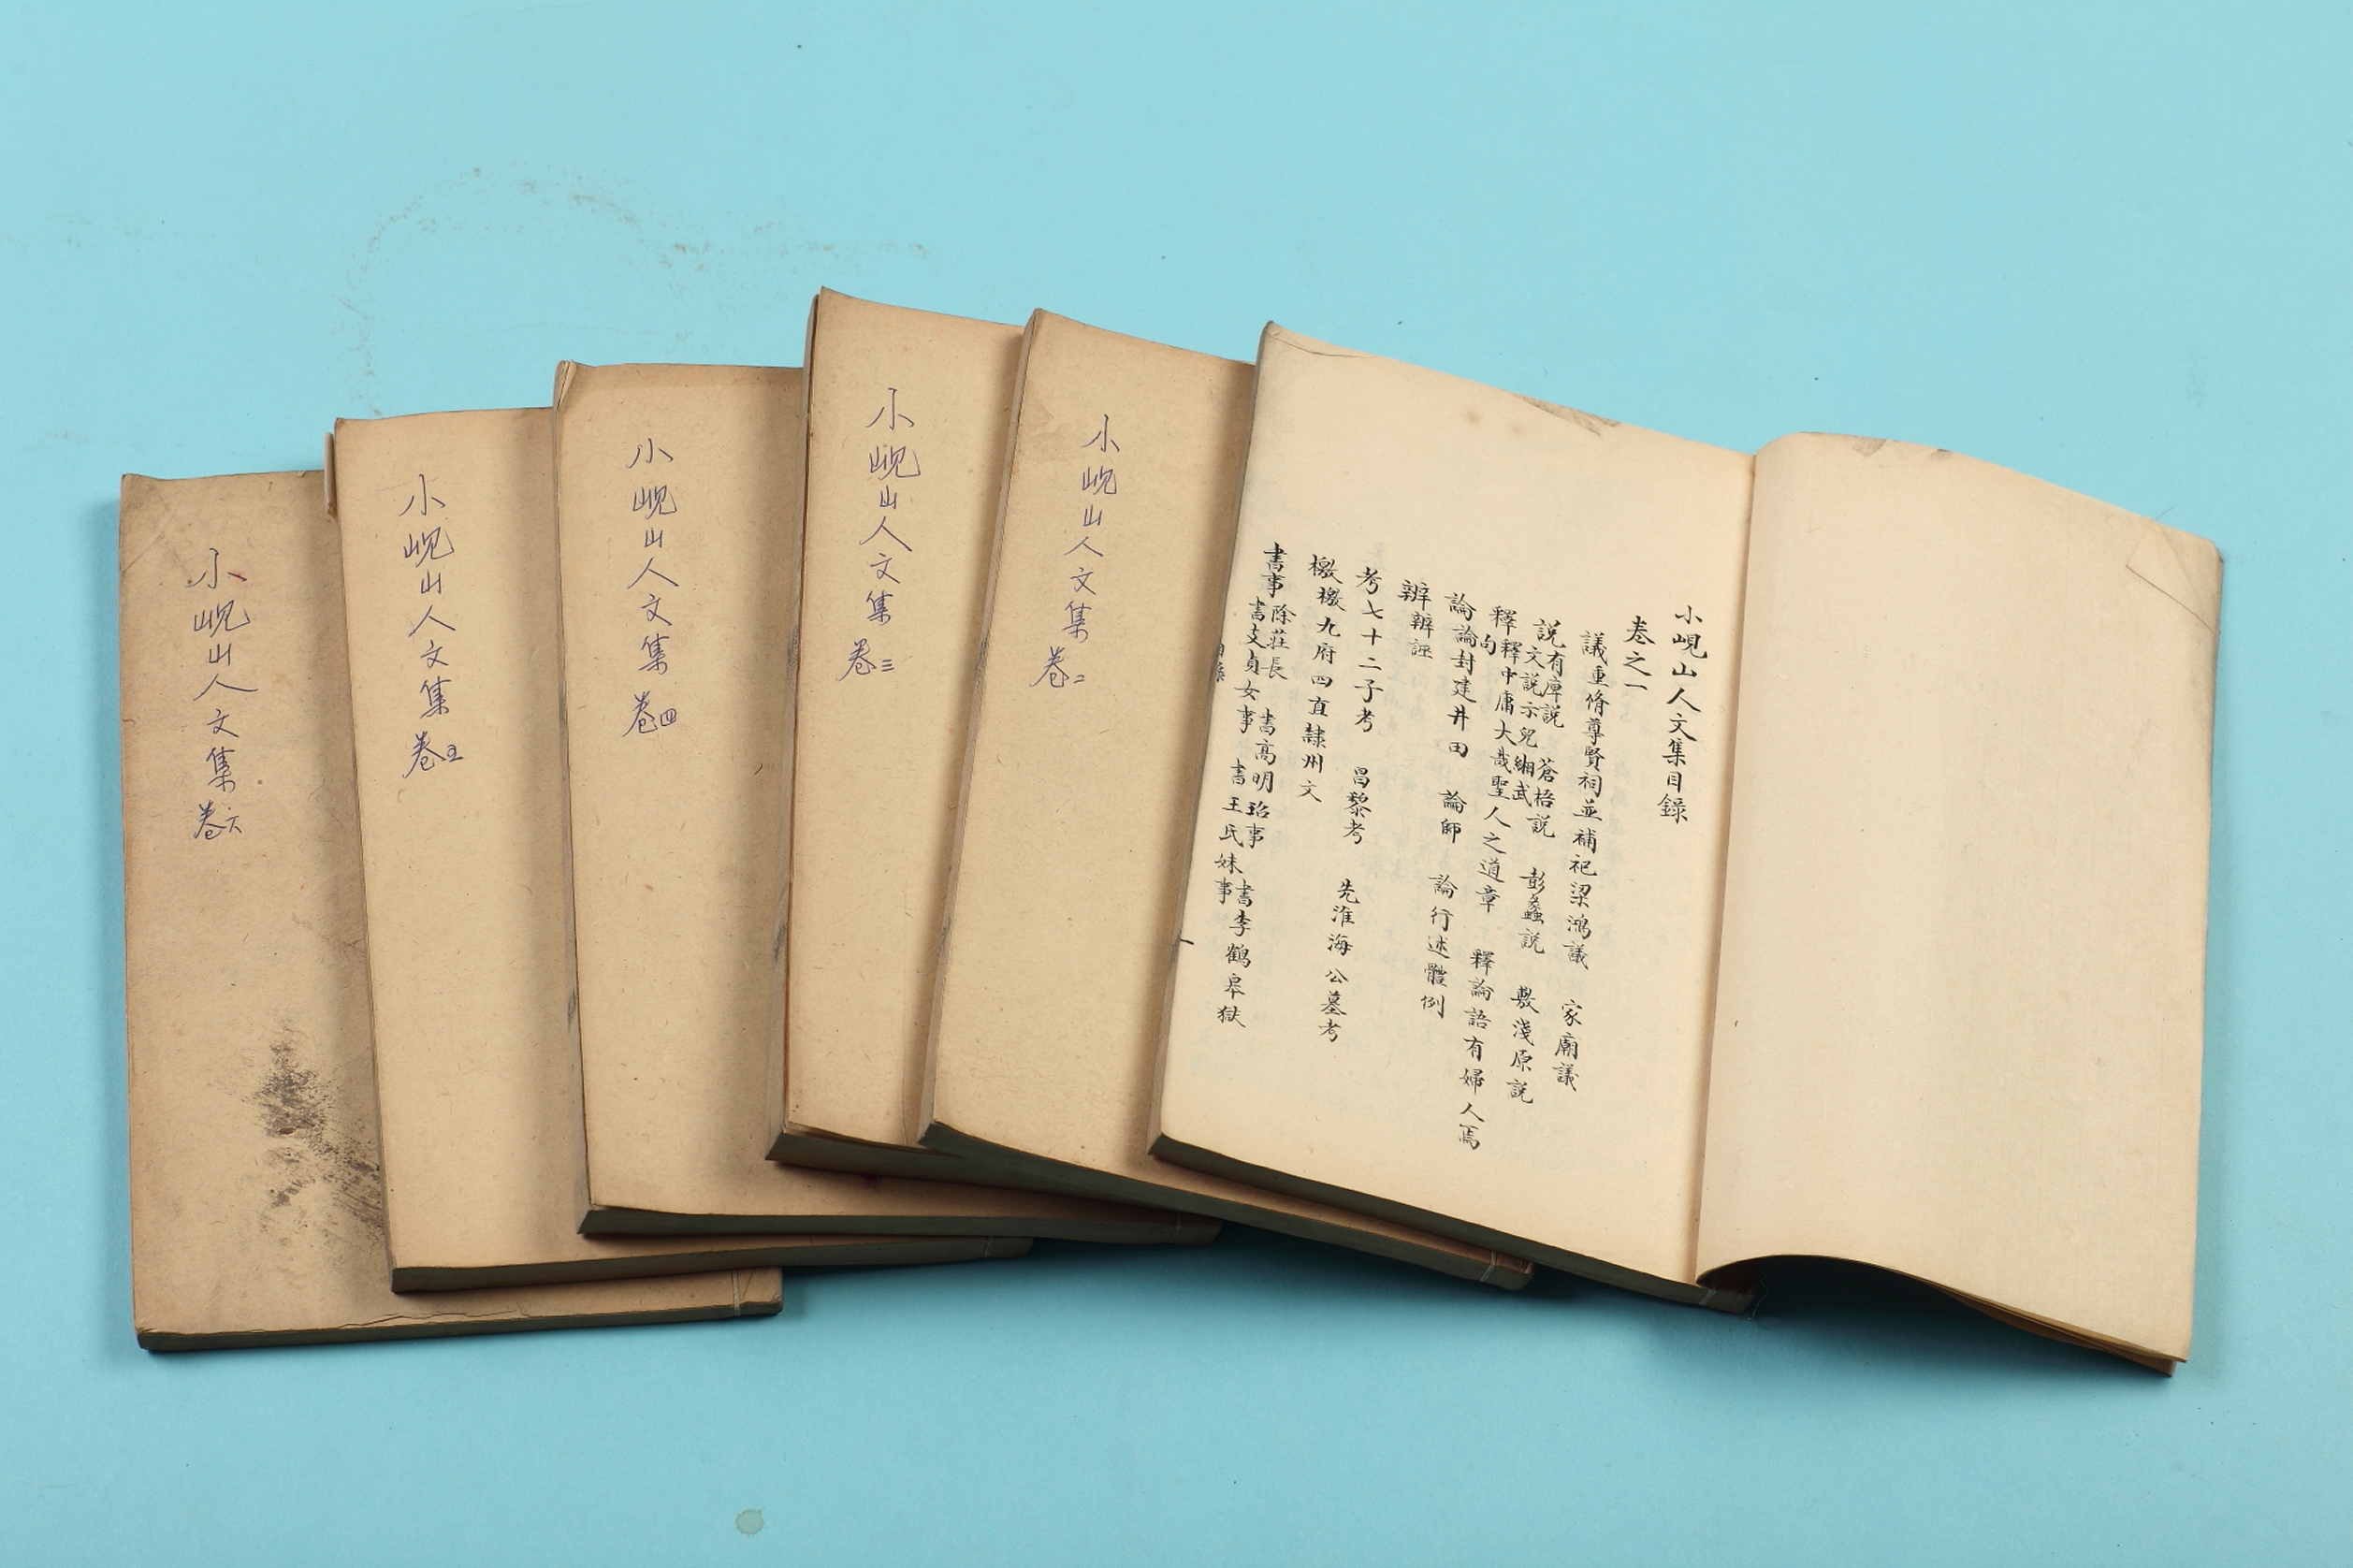 小峴山人文集目錄
卷之一
議重脩尊賢祠並補祀梁鴻議 家廟議
說有庳說 蒼梧說 彭蠡說 敷淺原說
文說示兒緗武
釋釋中庸大哉聖人之道章 釋論語有婦人焉
句
論論封建井田 論師 論行述體例
辨辨誣
考七十二子考 昌黎考 先淮海公墓考
檄檄九府四直隸州文
書事除莊長 書高明 事 書李鶴皋獄
書支貞女事 書王氏妹事
小峴山人文集 卷二
小峴山人文集 卷三
小峴山人文集 卷四
小峴山人文集 卷五
小峴山人文集 卷六